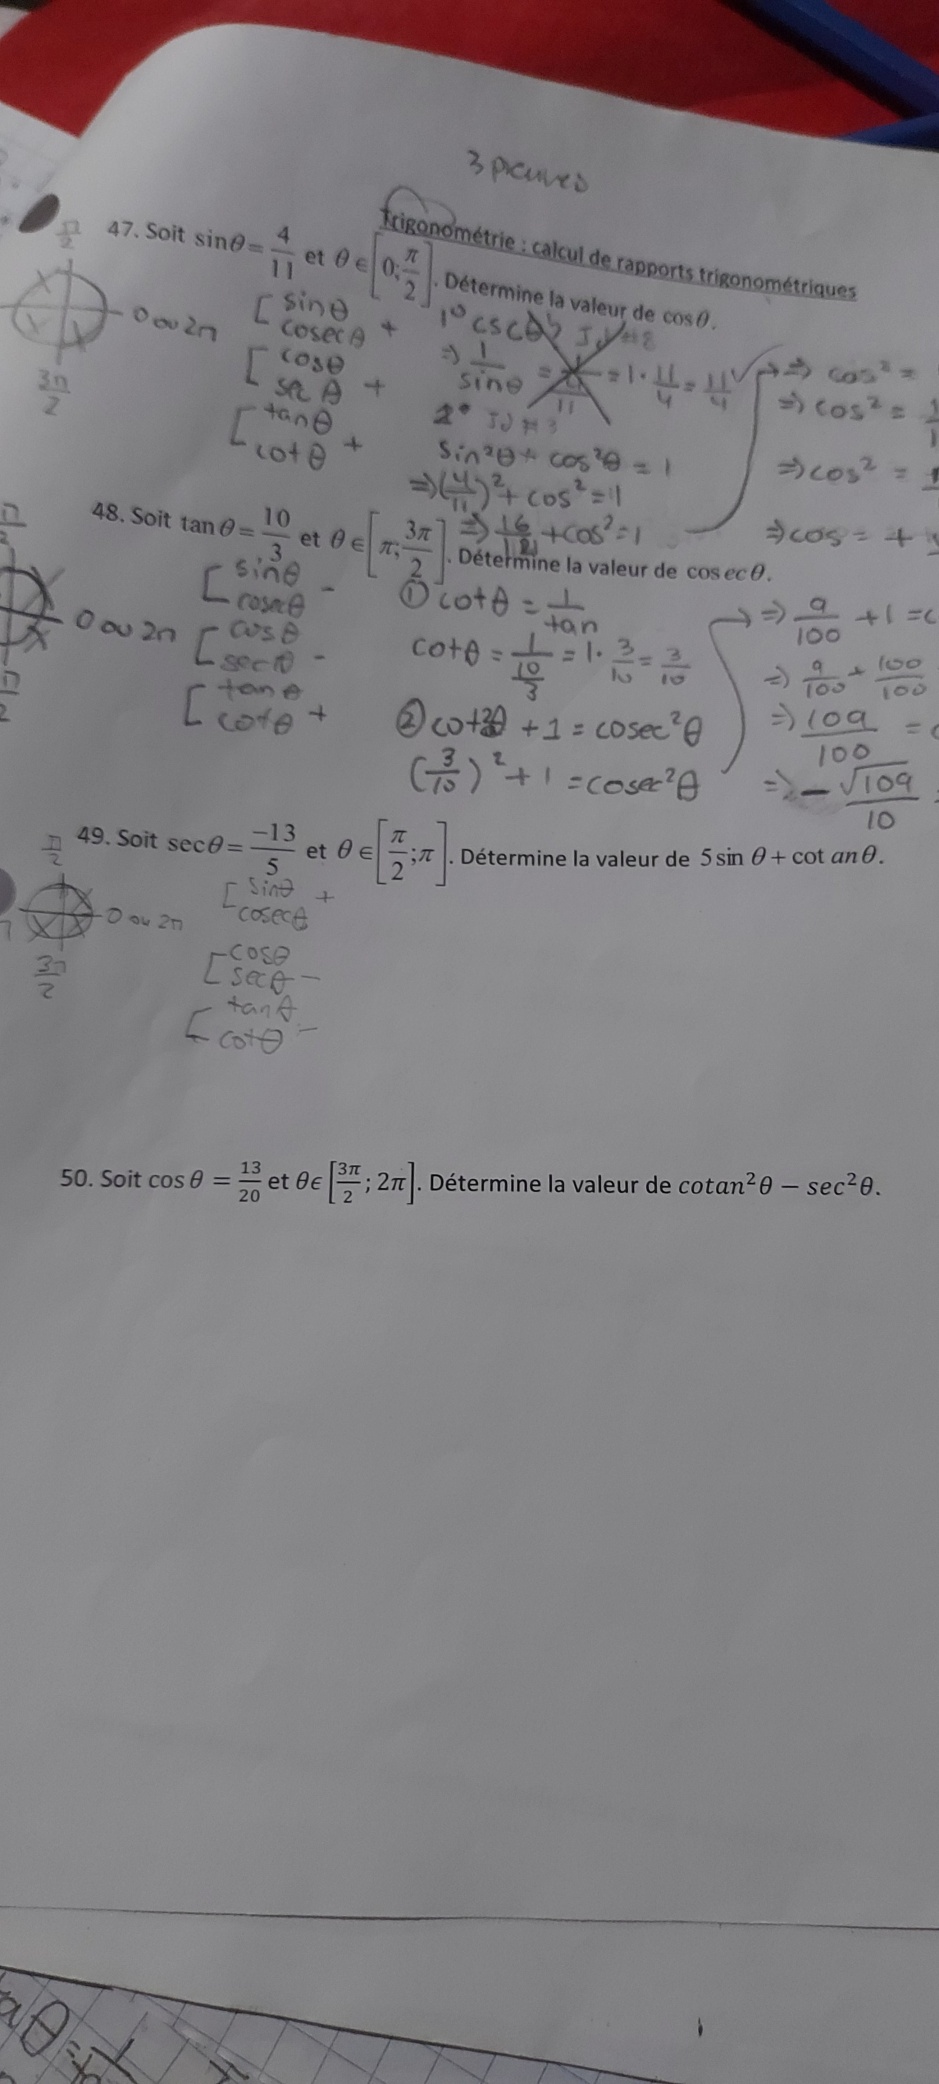 3 preuves
Trigonométrie : calcul de rapports trigonométriques
47. Soit sinθ = 4/11 et θ ∈ [0; π/2]. Détermine la valeur de cosθ.
π/2
0 ou 2π
3π/2
[ sinθ
cosecθ +
[ cosθ
sec θ +
[ tanθ
cotθ +
1° cscθ
⇒ 1/sinθ = = 1 · 11/4 = 11/4
2° Id #3
sin²θ + cos²θ = 1
⇒ (4/11)² + cos² = 1
⇒ 16/121 + cos² = 1
⇒ cos² =
⇒ cos² =
⇒ cos² =
⇒ cos = +
48. Soit tanθ = 10/3 et θ ∈ [π; 3π/2]. Détermine la valeur de cosecθ.
0 ou 2π
[ sinθ
cosecθ -
[ cosθ
secθ -
[ tanθ
cotθ +
① cotθ = 1/tan
cotθ = 1/(10/3) = 1 · 3/10 = 3/10
② cot²θ + 1 = cosec²θ
(3/10)² + 1 = cosec²θ
⇒ 9/100 + 1 = c
⇒ 9/100 + 100/100
⇒ 109/100 =
⇒ -√109/10 =
49. Soit secθ = -13/5 et θ ∈ [π/2; π]. Détermine la valeur de 5 sin θ + cot anθ.
π/2
0 ou 2π
3π/2
[ sinθ
cosecθ +
[ cosθ
secθ -
[ tanθ
cotθ -
50. Soit cos θ = 13/20 et θϵ [3π/2; 2π]. Détermine la valeur de cotan²θ − sec²θ.